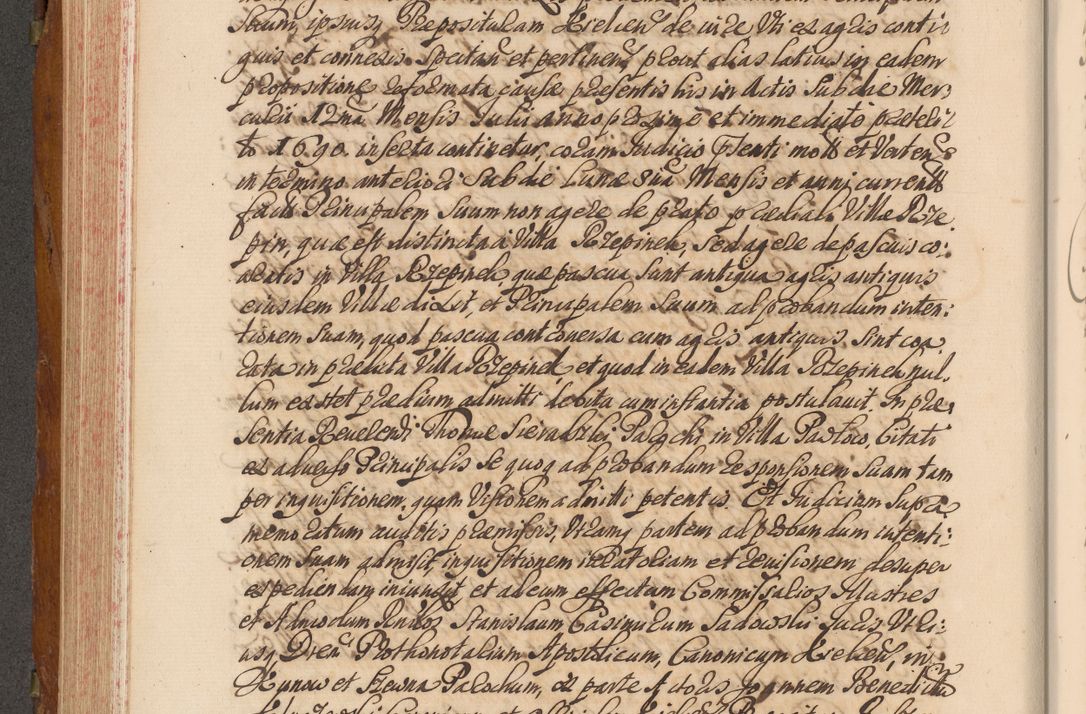 Suum, ipsusq Præpositulam Kielien de iure Vti ex agris conti:
guis et connexis Spectan et pertinen prout alias latius in eadem
propositione reformata causæ præsentis his in Actis Sub die Mer,
curii 12ma Mensis Julii anno proxime et immediate præteri:
to 1690 inserta continetur, coram Judicio
in termino anteriori Sub die Lunæ 8va Mensis et anni currentis
facti Principalem Suum non agere de præfato prædiali Villæ Rze
pin, quæ est distincta a Villa Rzepinek, Sed agere de pascuis co:
aratis in Villa Rzepinek, quæ pascua Sunt antiqua agris antiquis
eiusdem Villæ dixit, et Principalem Suum ad probandum inten:
tionem Suam, quod pascua controversa cum agris antiquis Sint coa
rata in prædicta Villa Rzepinek, et quod in eadem Villa Rzepinek nul,
lum exstet prædium admitti debita cum instantia postulavit. In præ,
sentia Reverendi Thomæ Sierakski, Parochi in Villa Pawłow, Citati
ex adverso Principalis Se quoq ad probandum responsionem Suam tam
per inquisitionem, quam Visionem admitti petentis. Et Judicium Supra
memoratum auditis præmissis, Utramq partem ad probandum intenti:
onem Suam admisit inquisitionem relatoriam et revisionem desuper
expediendam iniunxit et ad eum effectum Commissarios Illustres
et Admodum Rndos Stanislaum Casimirum Sadowski Juris Utri:
usq Drem Prothonotarium Apostolicum, Canonicum Kielien, in
Kunow et Rewna Parochum, ex parte Actoris Joannem Benedictu